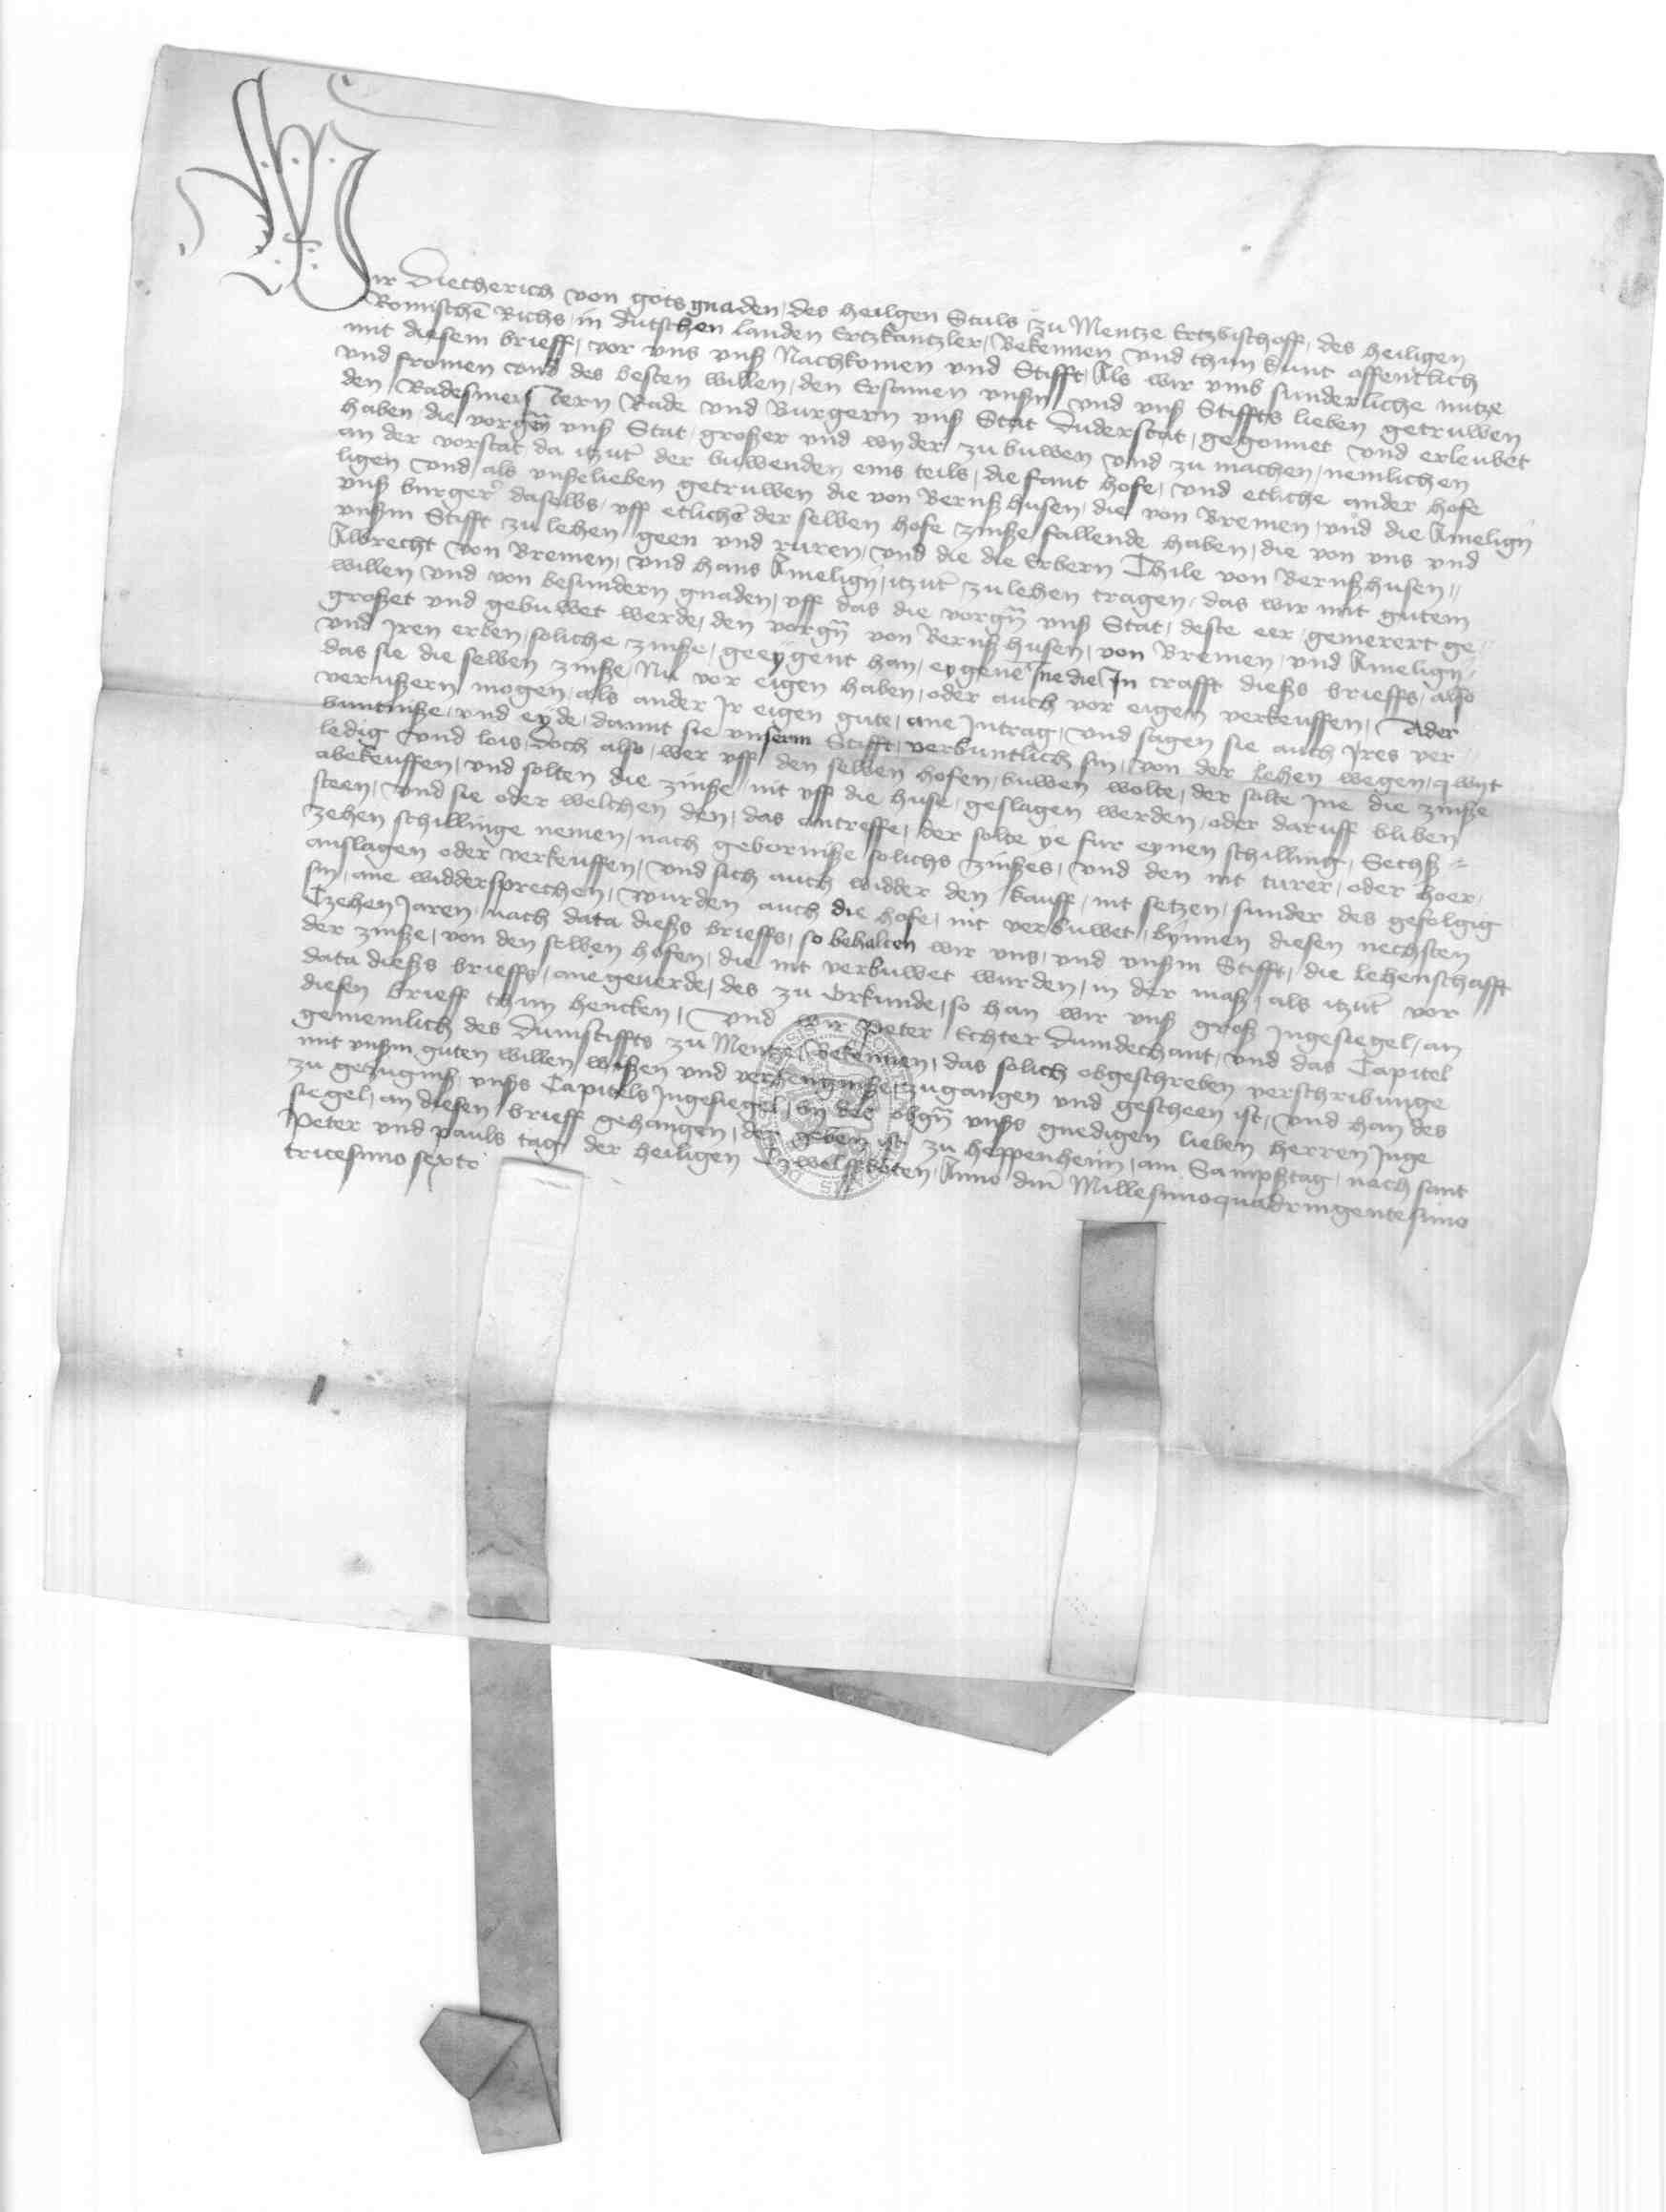 Wir Diecherich von gots gnaden, des heilgen Stuls zu Mentze Ertzbischoff, des heiligen
Romischē Richs, in dutschen landen Ertzkantzler, Bekennen und thun kunt offentlich
mit diesem brieff, vor uns unß Nachkomen und Stifft, Als wir umb sunderliche nutze
und fromen und des besten willen, den Ersamen unßn und unß Stiffts lieben getruwen
den Radesmeistern Rade und Burgern unß Stat Duderstat, gegonnet und erleubet
haben die vorgn̄ unß Stat, großer und wyder zu buwen und zu machen, nemlichen
an der vorstat, da itzūt der buwenden eins teils, die fant hofe, und etliche ander hofe
ligen und, als unße lieben getruwen die von Bernßhusen, die von Bremen, und die Ameligñ
unß burger daselbs, uff etlichē der selben hofe zinße fallende haben, die von uns und
unßm Stifft zu lehen geen und ruren, und die die Erbern Thile von Bernßhusen
Albrecht von Bremen, und hans Ameligñ, itzūt zu lehen tragen, das wir mit gutem
willen und von besundern gnaden, uff das die vorgn̄ unß Stat, deste eer gemerert ge
großet und gebuwet werde, den vorgn̄ von Bernßhusen, von Bremen, und Ameligñ
und Iren erben, soliche zinße, geeygent han, eygenē Ine die In crafft dießs brieffs, also
das sie die selben zinße, Nu vor eigen haben, oder auch vor eigen verkeuffen, Ader
verußern mogen, als ander Ir eigen gute, ane Intrag, und sagen sie auch Ires ver
buntniße, und eyde, damit sie unserm Stifft, verbuntlich sin, von der lehen wegen, qwyt
ledig und lois, doch also, wer uff den selben hofen, buwen wolte, der solte Ine die zinße
abekeuffen, und solten die zinße nit uff die huse, geslagen werden, oder daruff bliben
steen, und sie oder welchen den, das antreffe, der solte ye fur eynen schilling, Sechß
zehen schillinge nemen, nach geborniße solichs zinßes, und den nit turer, oder hoer,
anslagen oder verkeuffen, und sich auch widder den kauff, nit setzen, sunder des gefolgig
sin, ane widdersprechen, wurden auch die hofe, nit verbuwet, bynnen diesen nechsten
Czehen Jaren, nach data dießs brieffs, so behalten wir uns, und unßm Stifft, die lehenschafft
der zinße, von den selben hofen, die nit verbuwet wurden, in der maß, als itzūt vor
data dießs brieffs, ane geuerde, des zu Urkunde, so han wir unß groß Ingesiegel, an
diesen brieff thun hencken, und wir Peter Echter Dumdechant, und das Capitel
gemeinlich des Dumstiffts zu Mentze, Bekennen, das solich obgeschreben verschribunge
mit unßm guten willen wißen und verhengniße, zugangen und gescheen ist, und han des
zu getzugniß, unßs Capitels Ingesiegel, by des obgn̄ unßs gnedigen lieben herren Inge
siegel, an diesen brieff gehangen, der geben ist zu Heppenheim, am Sampßtag, nach sant
Peter und pauls tag der heiligen Czwelffboten, Anno dm̄ Millesimoquadringentesimo
tricesimo sexto